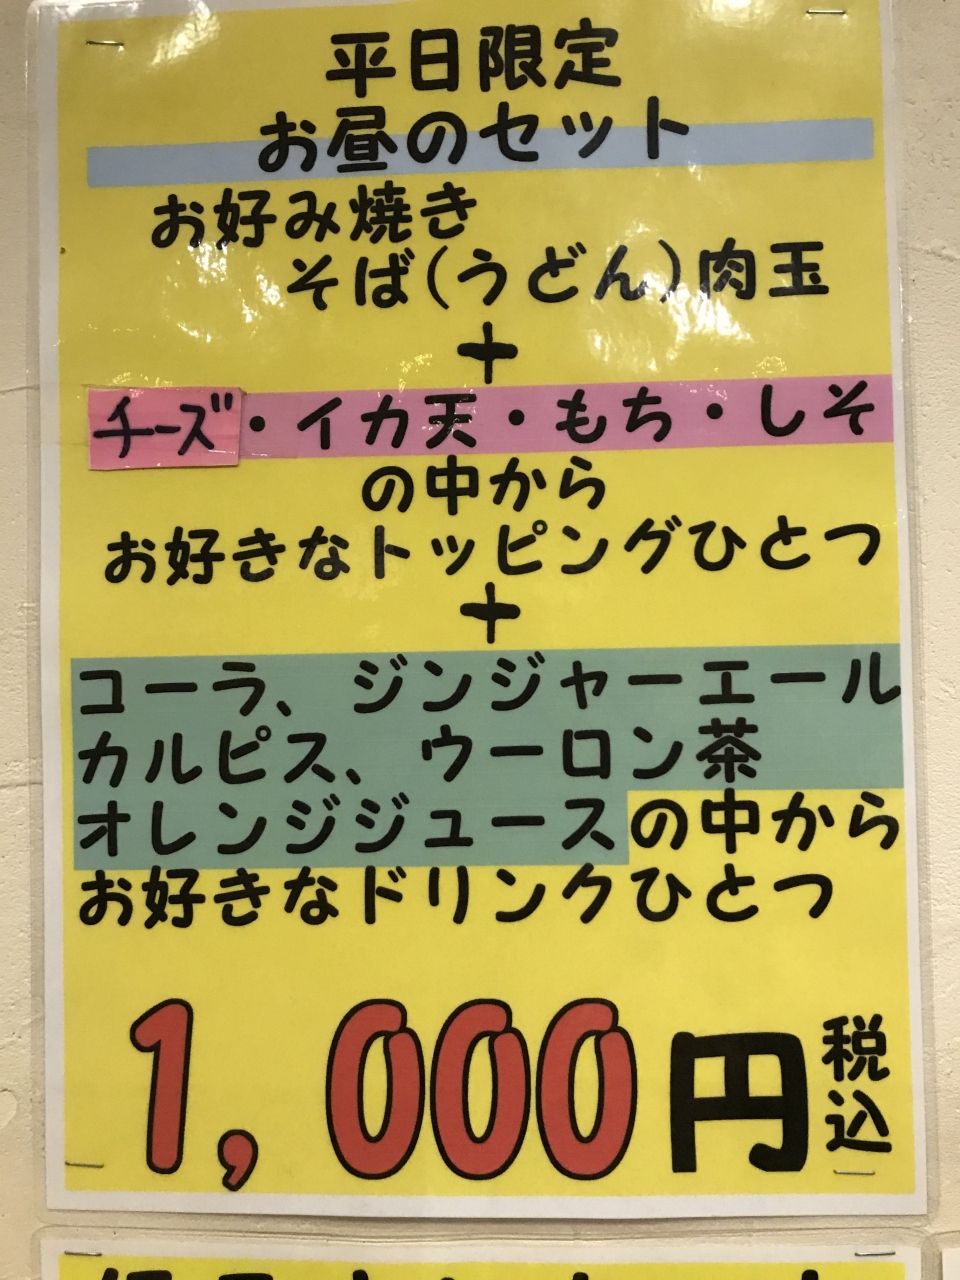 平日限定
お昼のセット
お好み焼き
そば(うどん)肉玉
+
チーズ・イカ天・もち・しそ
の中から
お好きなトッピングひとつ
+
コーラ、ジンジャーエール
カルピス、ウーロン茶
オレンジジュースの中から
お好きなドリンクひとつ
1,000円税込